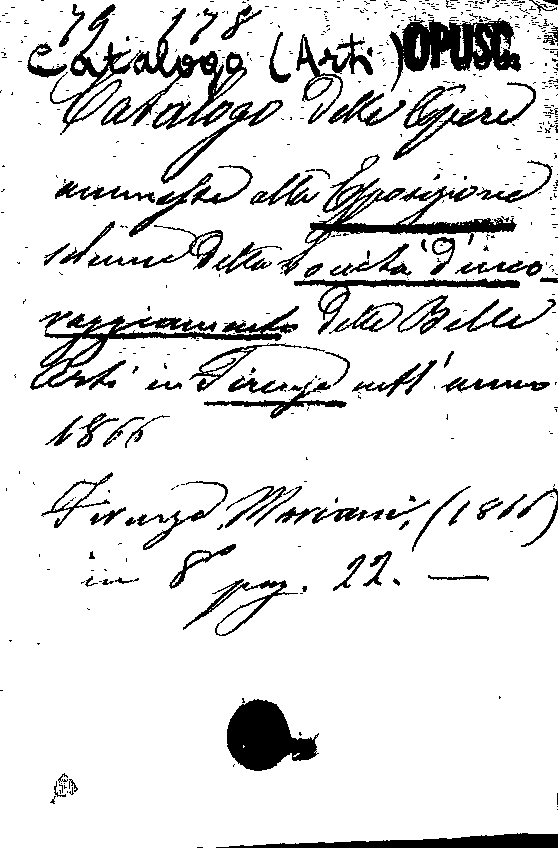 79 178
Catalogo (Arti) OPUSC.
Catalogo delle Opere
ammesse alla Esposizione
solenne della Società d'inco
raggiamento delle Belle
Arti in Firenze nell'anno
1866
Firenze, Mariani, (1866)
in 8º pag. 22. —